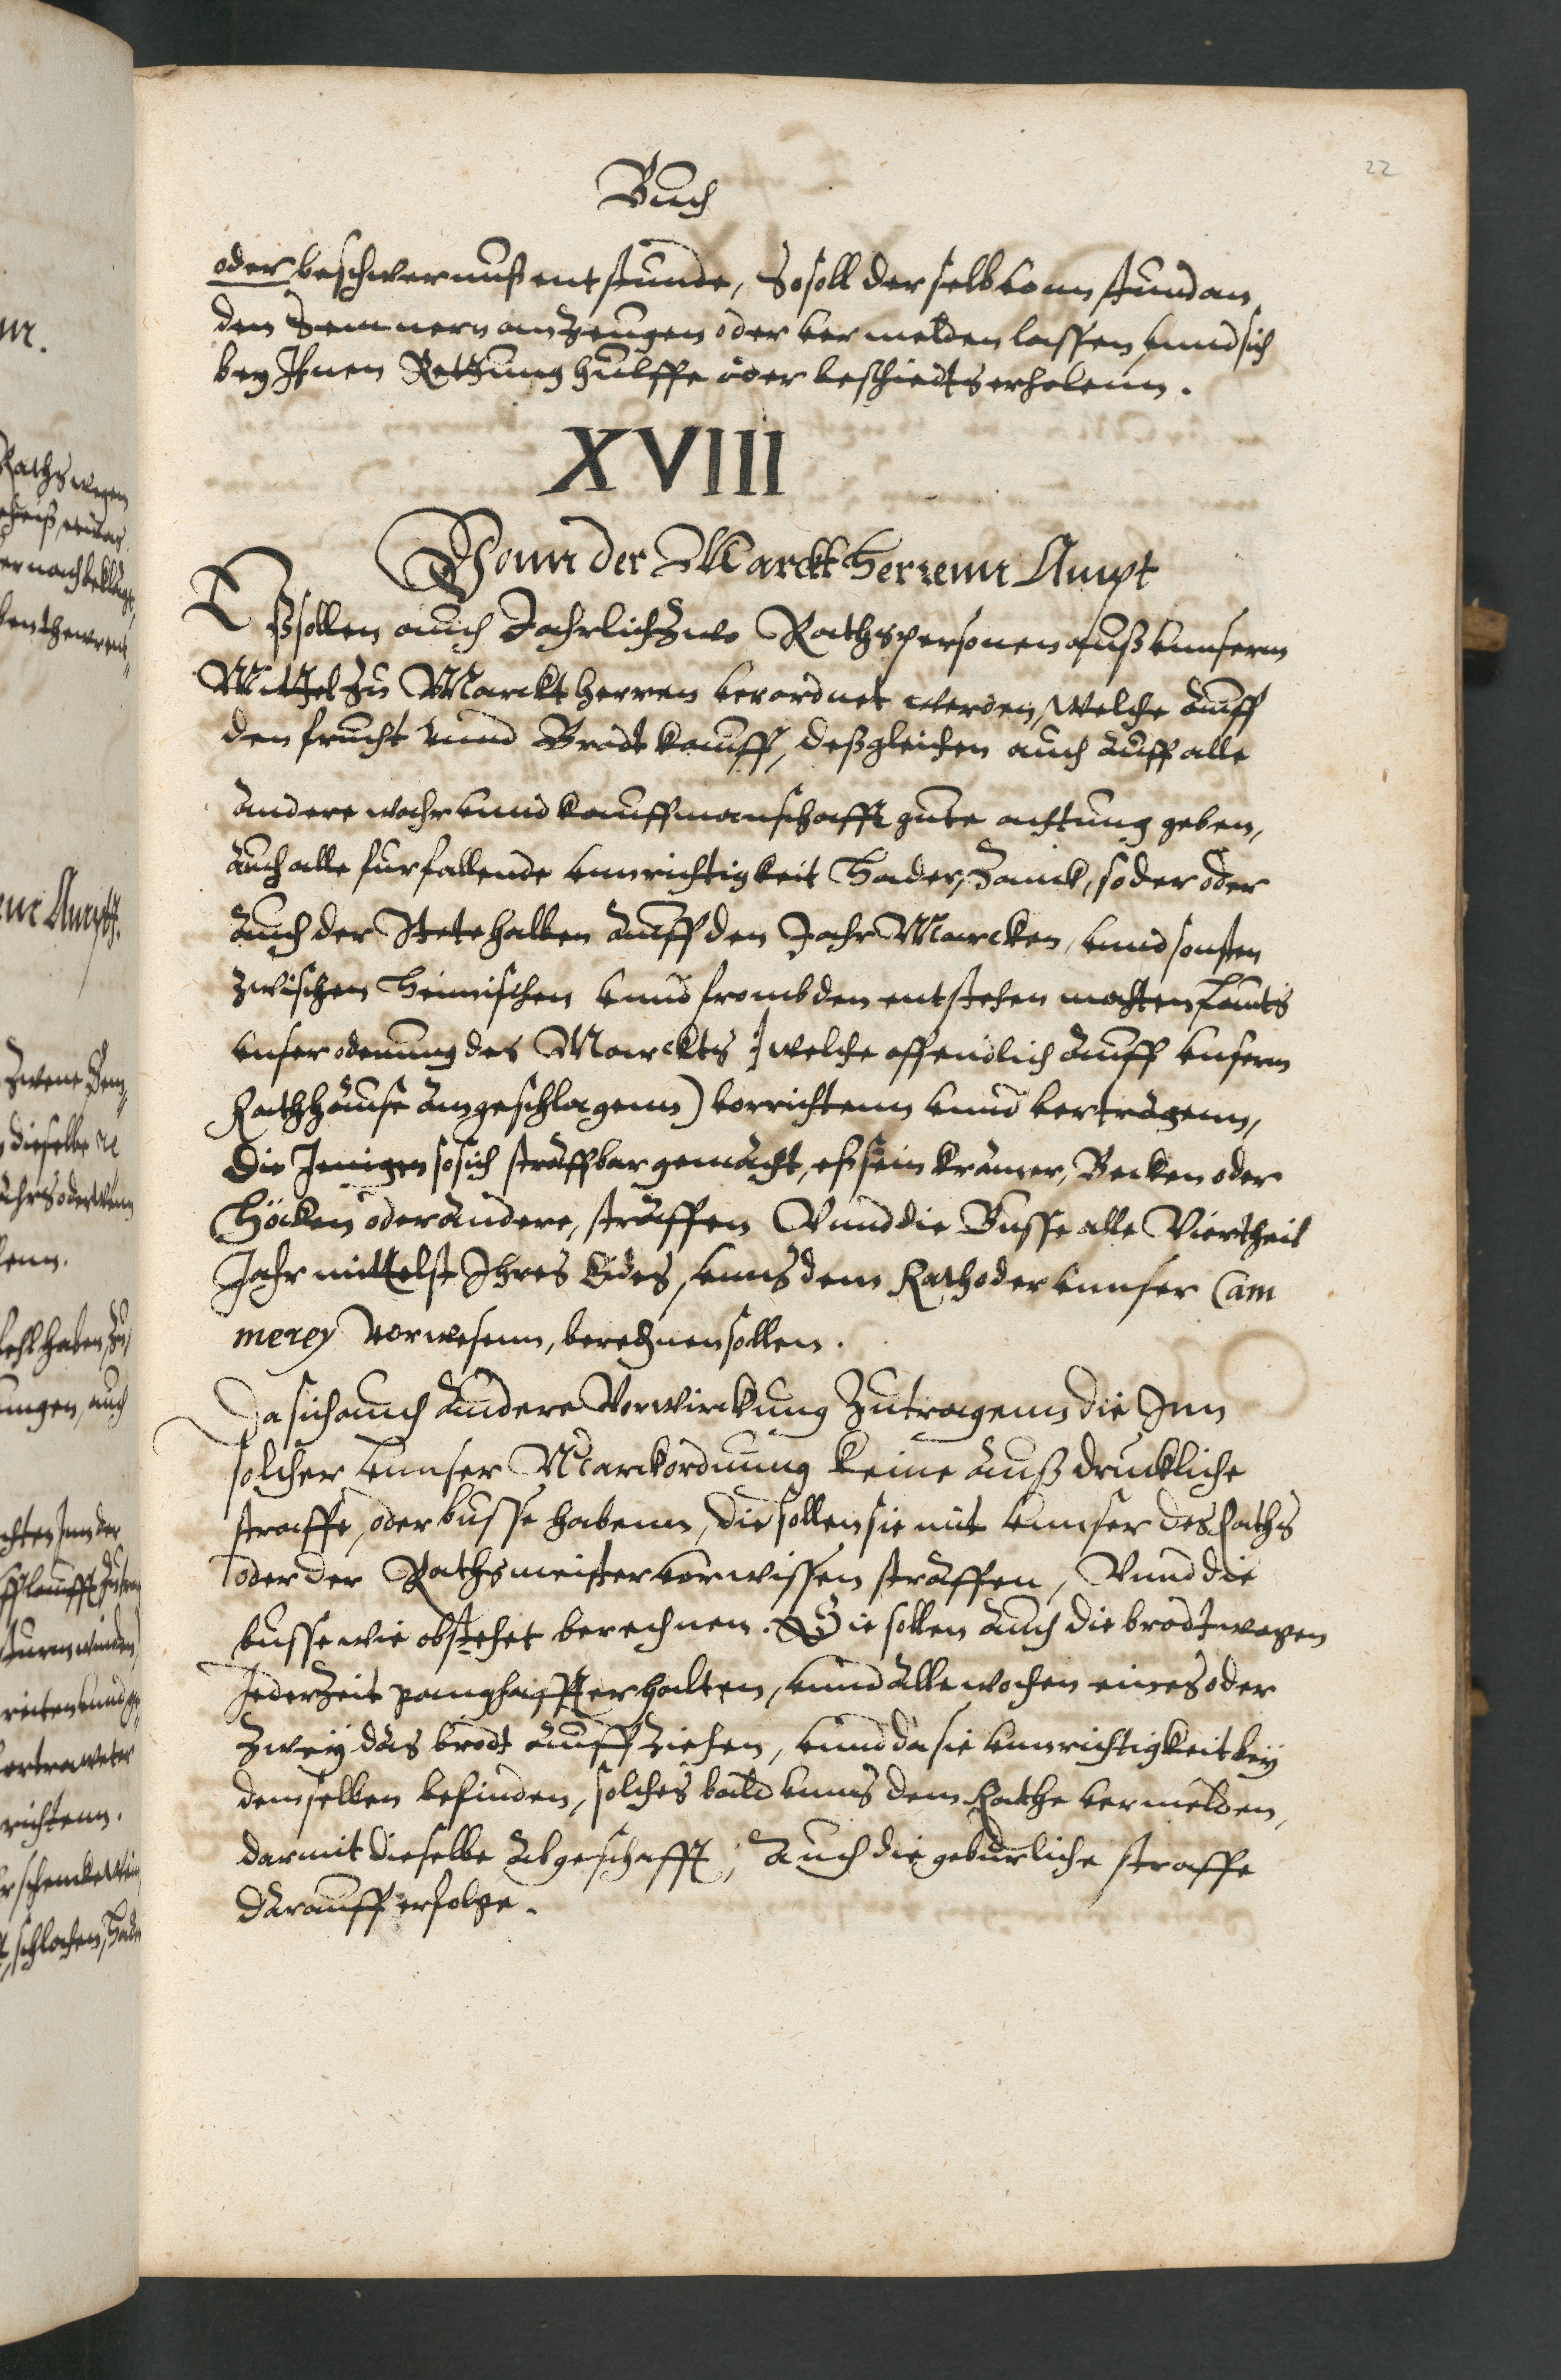 22
Buch
oder beschwernuß entstunde, So soll derselb vonn stund an
den Semnern anzeugen oder vermelden lassen vnnd sich
bey Ihnen Rettung hulffe oder beschiedts erholenn.
XVIII
Vonn der Marckt Herrenn Ampt
Eß sollen auch Jahrlich Zwo Rathspersonen auß vnnserm
Mittel zu Marckt herren verordnet werden, welche auff
den frucht vnnd Brodt kauff, deßgleichen auch auff alle
andere wahr vnnd kauffmanschafft gute achtung geben,
auch alle furfallende vnnrichtigkeit Hader, Zanck, so der oder
auch der Stete halben auff den Jahr Marcken, vnnd sonsten
zwischen Heimischen vnnd frombden entstehen mochten, lauts
vnser odenung des Marckts (welche offendlich auff vnserm
Rathhause angeschlagenn) vorrichtenn vnnd vertragenn,
Die Jenigen so sich straffbar gemacht, eß sein kramer, Becken oder
Höcken oder andere, straffen Vnnd die Busse alle Viertheil
Jahr mittelst Ihres Eides, vnns dem Rath oder vnnser Cam
merey vorwesenn, berechnen sollen.
Da sich auch andere Vorwirckung Zutragenn die Inn
solcher vnnser Marckordnung keine außdruckliche
straffe, oder busse habenn, die sollen sie mit vnnser des Raths
oder der Rathsmeister vorwissen straffen, Vnnd die
busse wie obstehet berechnen. Sie sollen auch die brodtwagen
Jederzeit ganghafft erhalten, vnnd alle wochen eines oder
zwey das brodt auffziehen, vnnd da sie vnnrichtigkeit bey
demselben befinden, solches bald vnns dem Rathe vermelden,
darmit dieselbe abgeschafft, Auch die geburliche straffe
darauff erfolge.